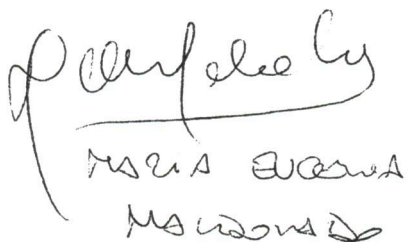 MARIA EUGENIA
MALDONADO